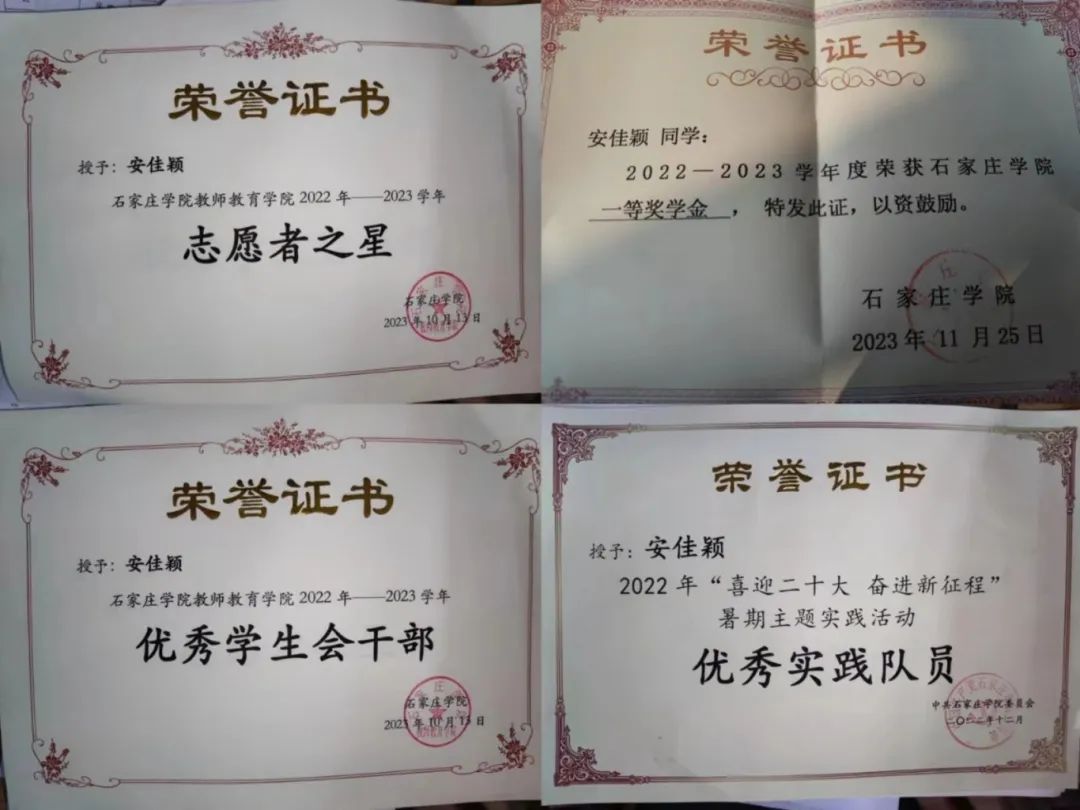 荣誉证书
授予：安佳颖
石家庄学院教师教育学院 2022 年——2023 学年
志愿者之星
石家庄学院
2023 年 10 月 13 日
荣誉证书
安佳颖 同学：
2022—2023 学年度荣获石家庄学院
一等奖学金 ， 特发此证，以资鼓励。
石家庄学院
2023 年 11 月 25 日
荣誉证书
授予：安佳颖
石家庄学院教师教育学院 2022 年——2023 学年
优秀学生会干部
石家庄学院
2023 年 10 月 13 日
荣誉证书
授予：安佳颖
2022 年“喜迎二十大 奋进新征程”
暑期主题实践活动
优秀实践队员
中共石家庄学院委员会
二〇二二年十二月